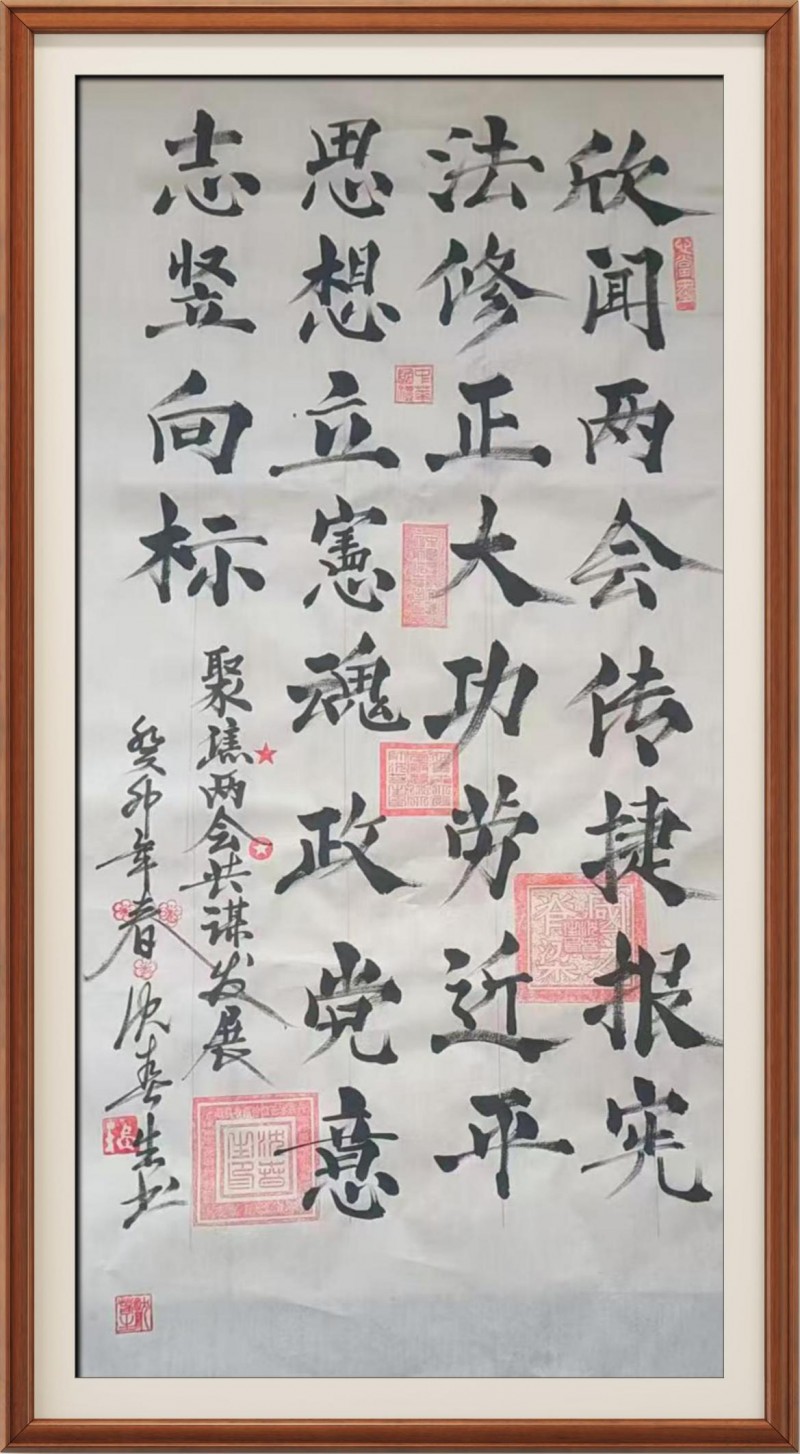 欣闻两会传捷报宪
法修正大功劳近平
思想立憲魂政党意
志竖向标
聚焦两会共谋发展
癸卯年春沈春生书